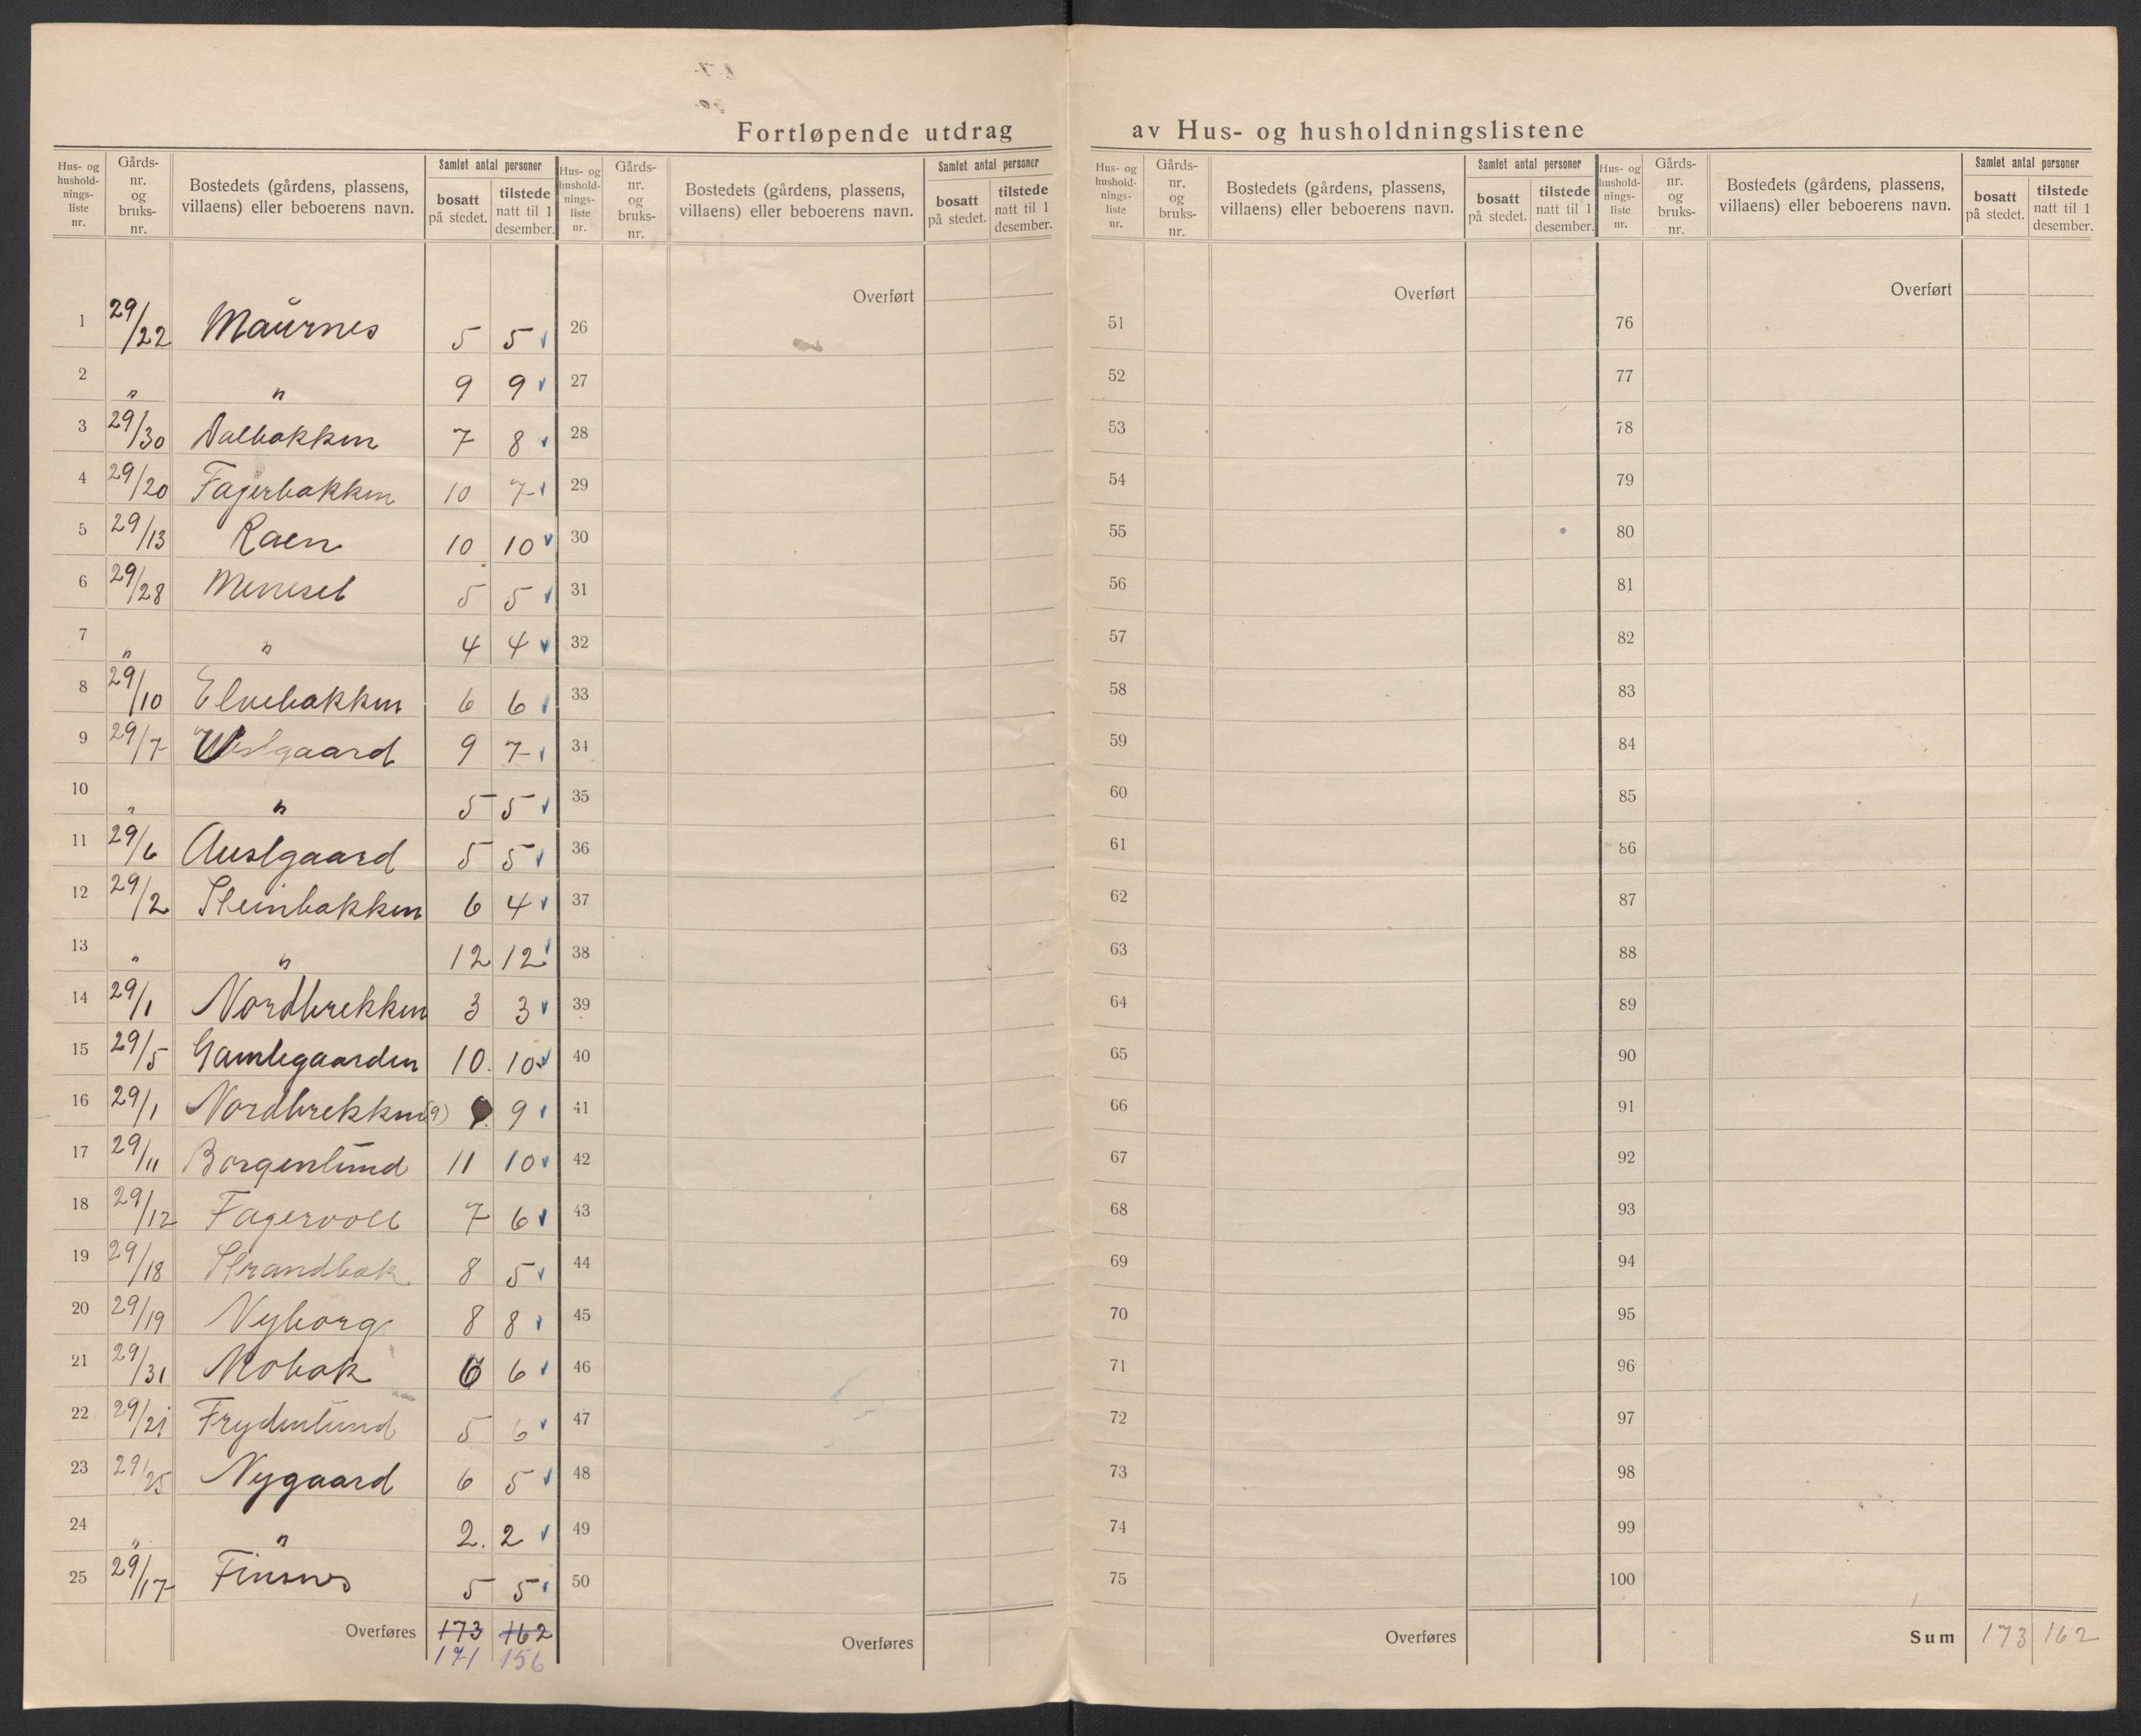 Fortløpende utdrag av Hus- og husholdningslistene
Hus- og hushold-nings-liste nr. Gårds-nr. og bruks-nr. Bostedets (gårdens, plassens, villaens) eller beboerens navn. Samlet antal personer bosatt på stedet. tilstede natt til 1 desember.
1 29/22 Maurnes 5 5
2 " " 9 9
3 29/30 Dalbakken 7 8
4 29/20 Fagerbakken 10 7
5 29/13 Raen 10 10
6 29/28 5 5
7 " " 4 4
8 29/10 Elvebakken 6 6
9 29/7 Vestgaard 9 7
10 " " 5 5
11 29/6 Austgaard 5 5
12 29/2 Steinbakken 6 4
13 " " 12 12
14 29/1 Nordbrekken 3 3
15 29/5 Gamlegaarden 10. 10
16 29/1 Nordbrekken (9) 9. 9
17 29/11 Borgenlund 11 10
18 29/12 Fagervoll 7 6
19 29/18 Strandbak 8 5
20 29/19 Nyborg 8 8
21 29/31 Mobak 6 6
22 29/21 Frydenlund 5 6
23 29/25 Nygaard 6 5
24 " " 2. 2
25 29/17 Finsnes 5 5
Overføres 173 162
171 156
Hus- og hushold-nings-liste nr. Gårds-nr. og bruks-nr. Bostedets (gårdens, plassens, villaens) eller beboerens navn. Samlet antal personer bosatt på stedet. tilstede natt til 1 desember.
Overført
26
27
28
29
30
31
32
33
34
35
36
37
38
39
40
41
42
43
44
45
46
47
48
49
50
Overføres
Hus- og hushold-nings-liste nr. Gårds-nr. og bruks-nr. Bostedets (gårdens, plassens, villaens) eller beboerens navn. Samlet antal personer bosatt på stedet. tilstede natt til 1 desember.
Overført
51
52
53
54
55
56
57
58
59
60
61
62
63
64
65
66
67
68
69
70
71
72
73
74
75
Overføres
Hus- og hushold-nings-liste nr. Gårds-nr. og bruks-nr. Bostedets (gårdens, plassens, villaens) eller beboerens navn. Samlet antal personer bosatt på stedet. tilstede natt til 1 desember.
Overført
76
77
78
79
80
81
82
83
84
85
86
87
88
89
90
91
92
93
94
95
96
97
98
99
100
Sum 173 162